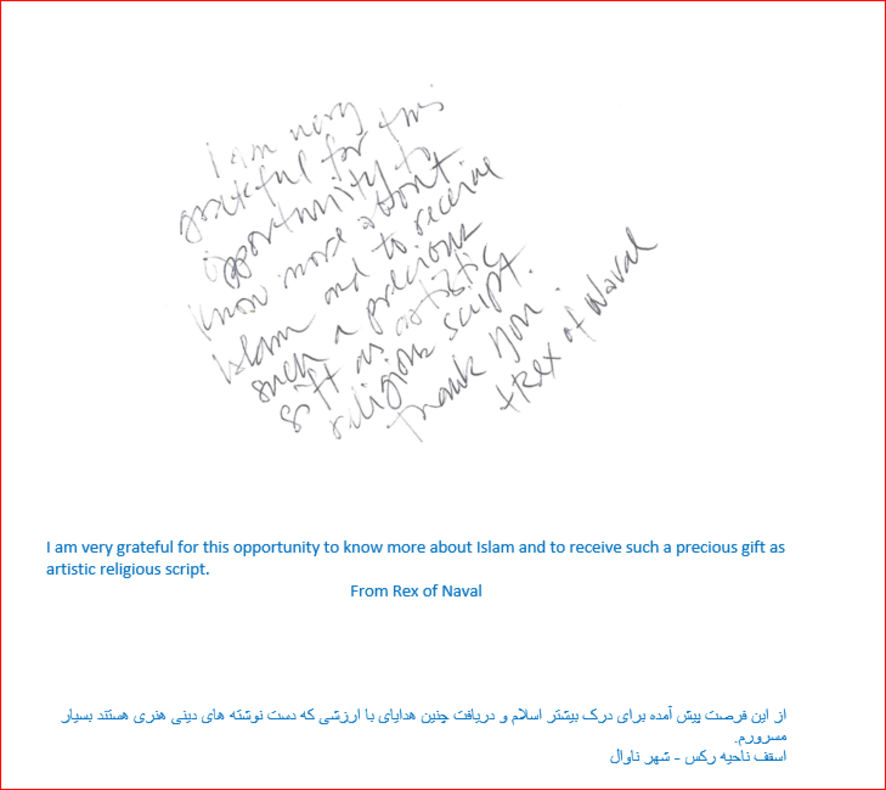 I am very
grateful for this
opportunity to
know more about
Islam and to receive
such a precious
gift as artistic
religious script.
Thank you.
+Rex of Naval
I am very grateful for this opportunity to know more about Islam and to receive such a precious gift as
artistic religious script.
From Rex of Naval
از این فرصت پیش آمده برای درک بیشتر اسلام و دریافت چنین هدایای با ارزشی که دست نوشته های دینی هنری هستند بسیار
مسرورم.
اسقف ناحیه رکس - شهر ناوال